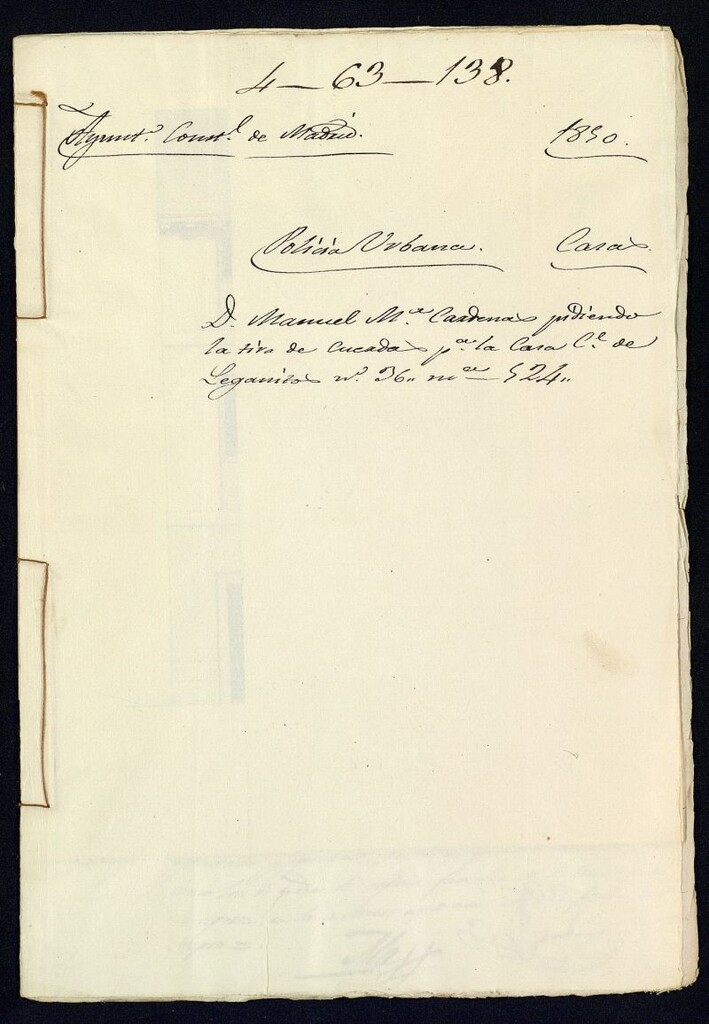 4 — 63 — 138.
Ayunt.º Const.l de Madrid. 1850.
Policia Urbana. Casas
D. Manuel M.a Cardenas pidiendo
la tira de cuerdas p.a la Casa C.e de
Leganitos n.º 36„ m.na 524„